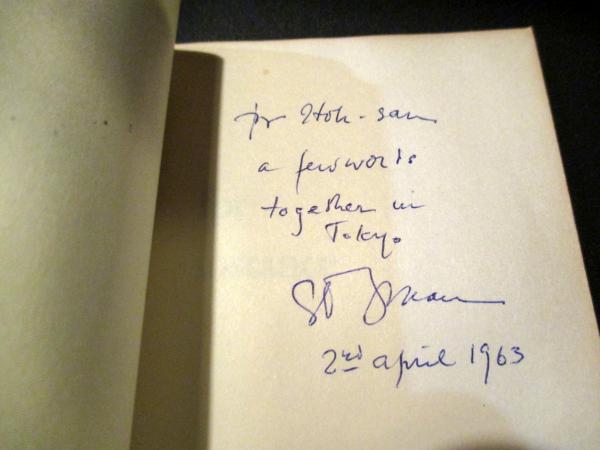 for Itoh-san
a few words
together in
Tokyo
2nd april 1963